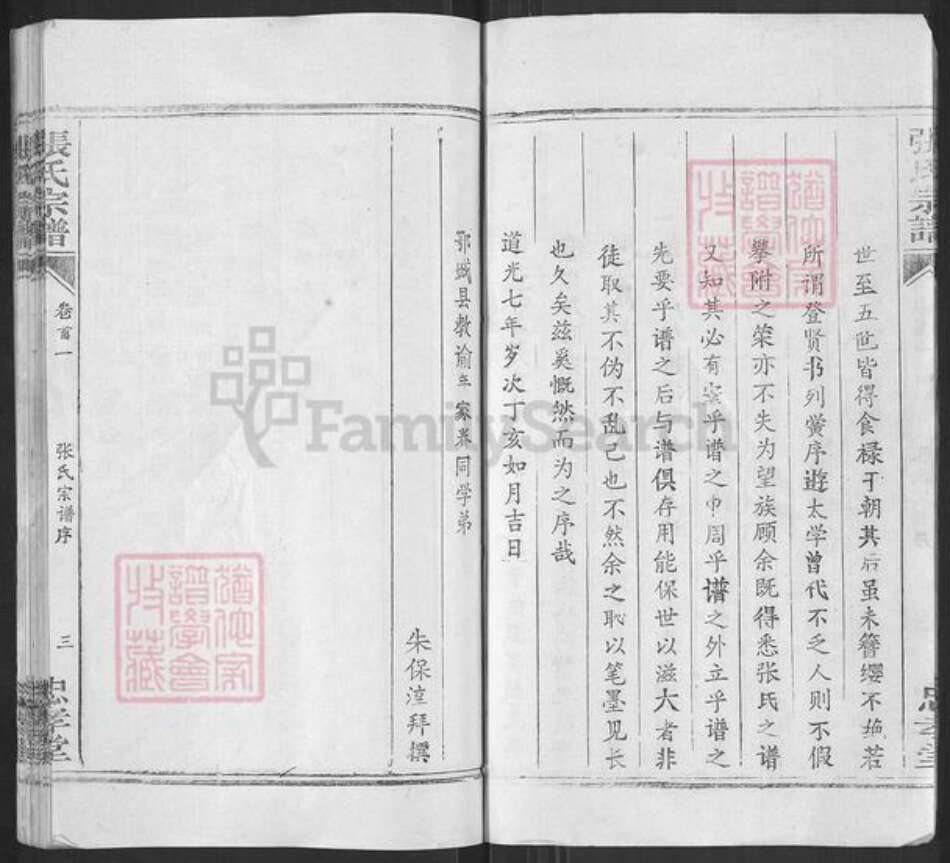 世至五世皆得食禄于朝其后虽未簪缨不绝若
所谓登贤书列黉序遊太学曾代不乏人则不假
攀附之荣亦不失为望族顾余既得悉张氏之谱
又知其必有空乎谱之中周乎谱之外立乎谱之
先要乎谱之后与谱俱存用能保世以滋大者非
徒取其不伪不乱己也不然余之恥以笔墨见长
也久矣兹奚慨然而为之序哉
道光七年岁次丁亥如月吉日
鄂城县教谕年家眷同学弟
朱保 拜撰
張氏宗譜
卷首一
张氏宗谱序
三
忠孝堂
張氏宗譜
忠孝堂
譜學會
收藏
譜學會
收藏
FamilySearch